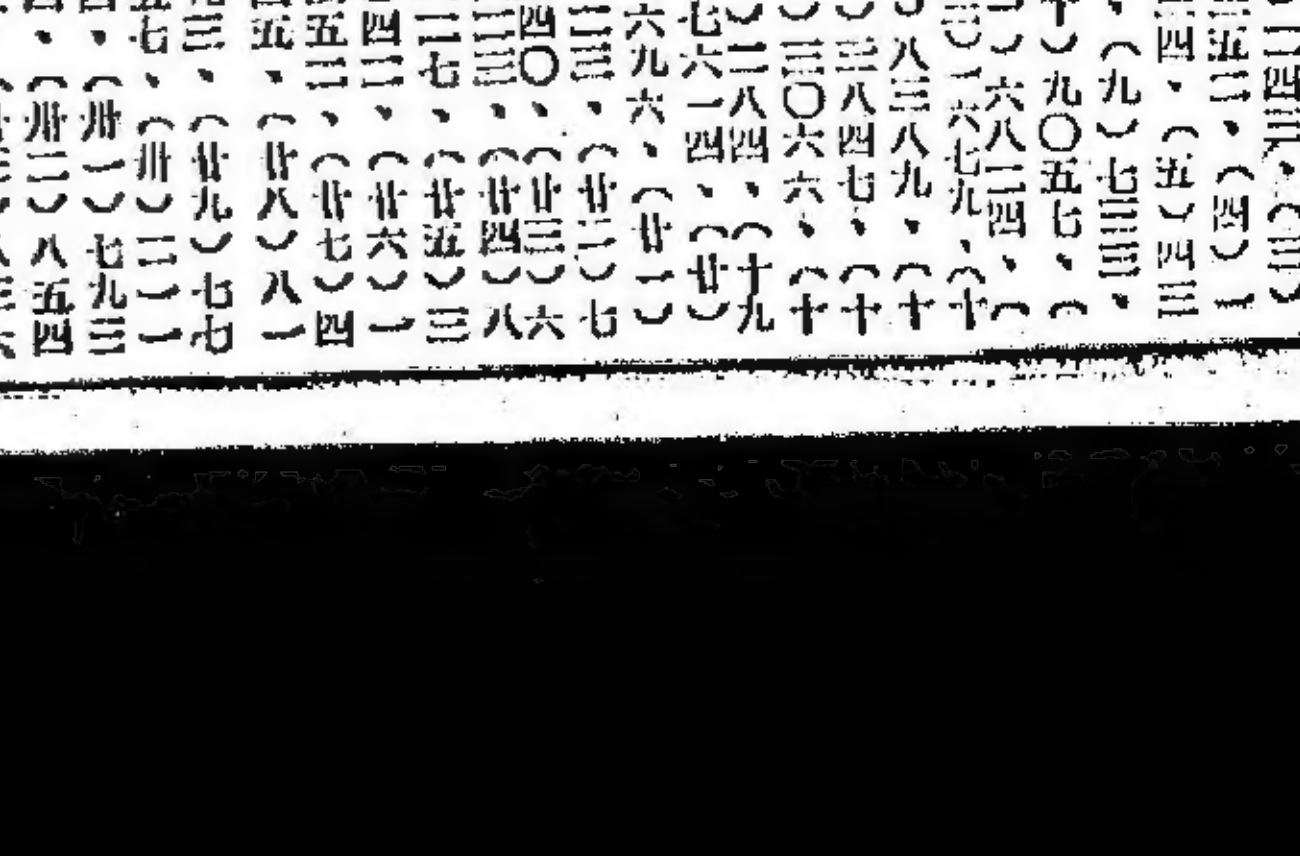 二四三、(三)
五二、(四)一
四、(五)四三
、(九)七三三、
十)九〇五七、(
)六八二四、(
)一六七九、(十
)八三八九、(十
)三八四七、(十
)三〇六六、(十
)二八四、(十九
七六一四、(廿)
六九六、(廿一)
二三、(廿二)七
四〇、(廿三)六
二三、(廿四)八
二七、(廿五)三
四二、(廿六)一
五二、(廿七)四
五、(廿八)八一
三、(廿九)七七
七、(卅)二一
、(卅一)七九三
、(卅二)八五四